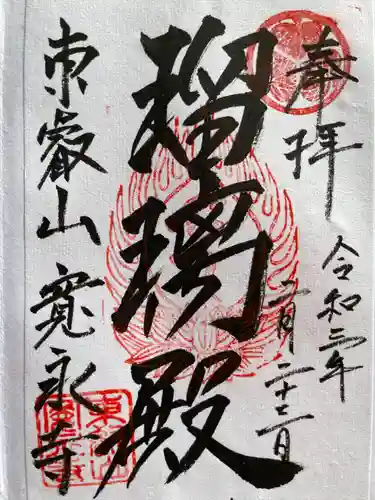 奉拝
令和三年
二月二十二日
瑠璃殿
東叡山 寛永寺